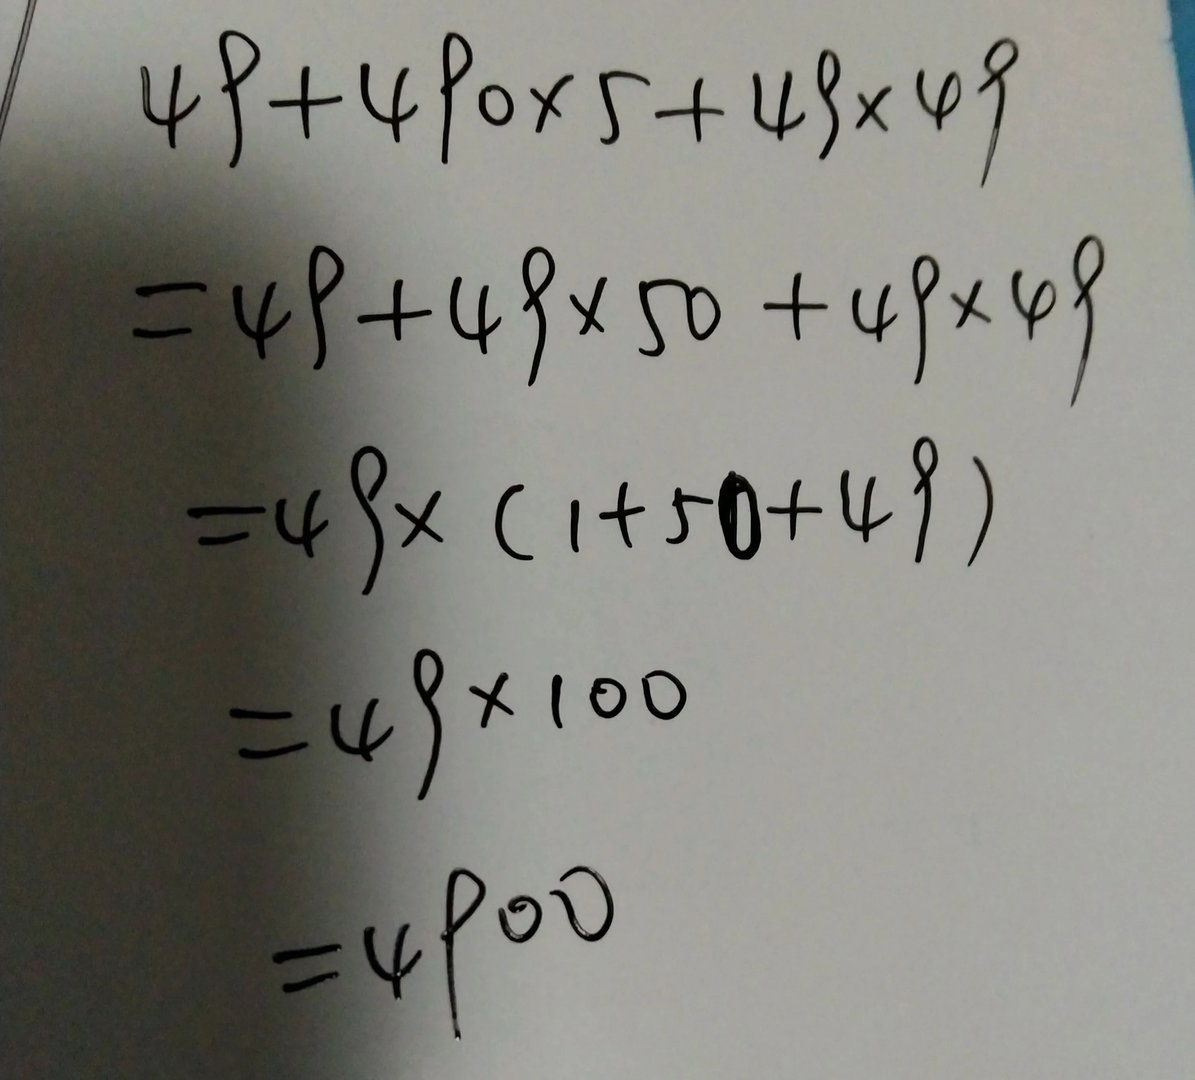 49+490×5+49×49
=49+49×50+49×49
=49×(1+50+49)
=49×100
=4900